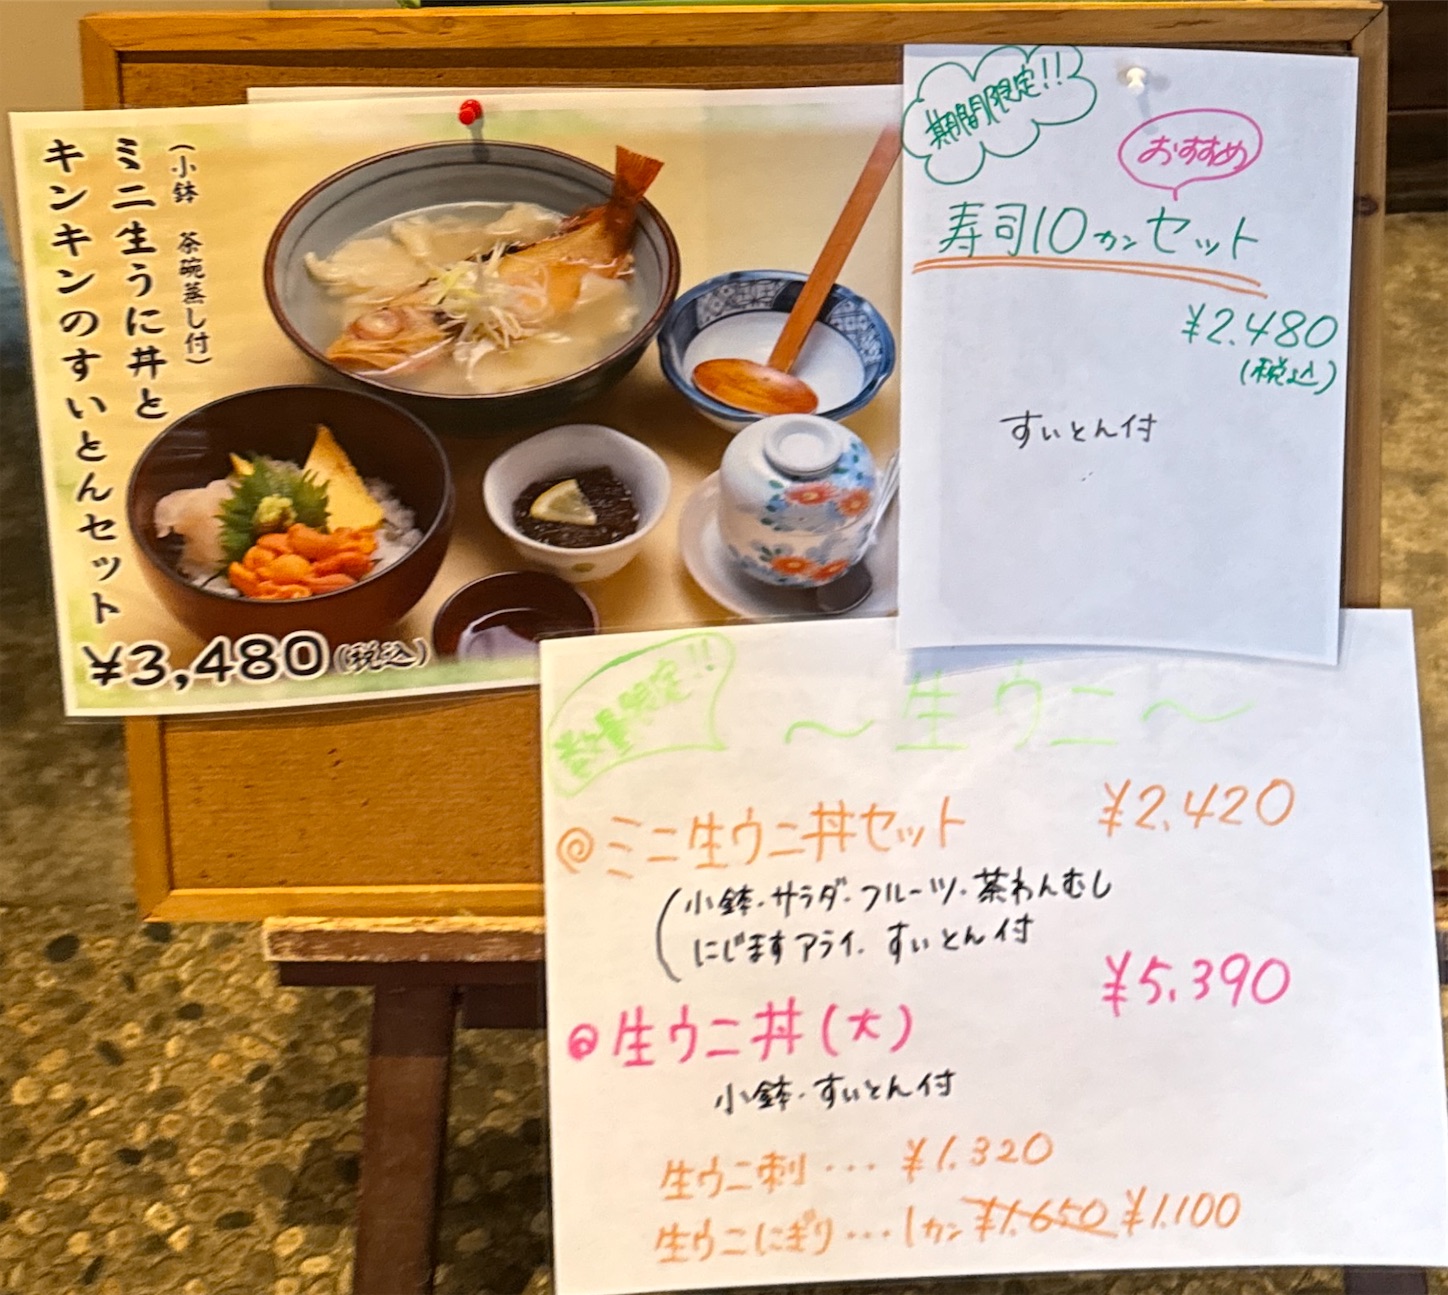 キンキンのすいとんセット
ミニ生うに丼と
(小鉢 茶碗蒸し付)
¥3,480(税込)
期間限定!!
おすすめ
寿司10カンセット
¥2.480
(税込)
すいとん付
数量限定!!
～生ウニ～
◎ミニ生ウニ丼セット ¥2,420
(小鉢・サラダ・フルーツ・茶わんむし
にじますアライ.すいとん付
¥5,390
◎生ウニ丼(大)
小鉢・すいとん付
生ウニ刺…¥1.320
生ウニにぎり…1カン ¥1.650 ¥1.100